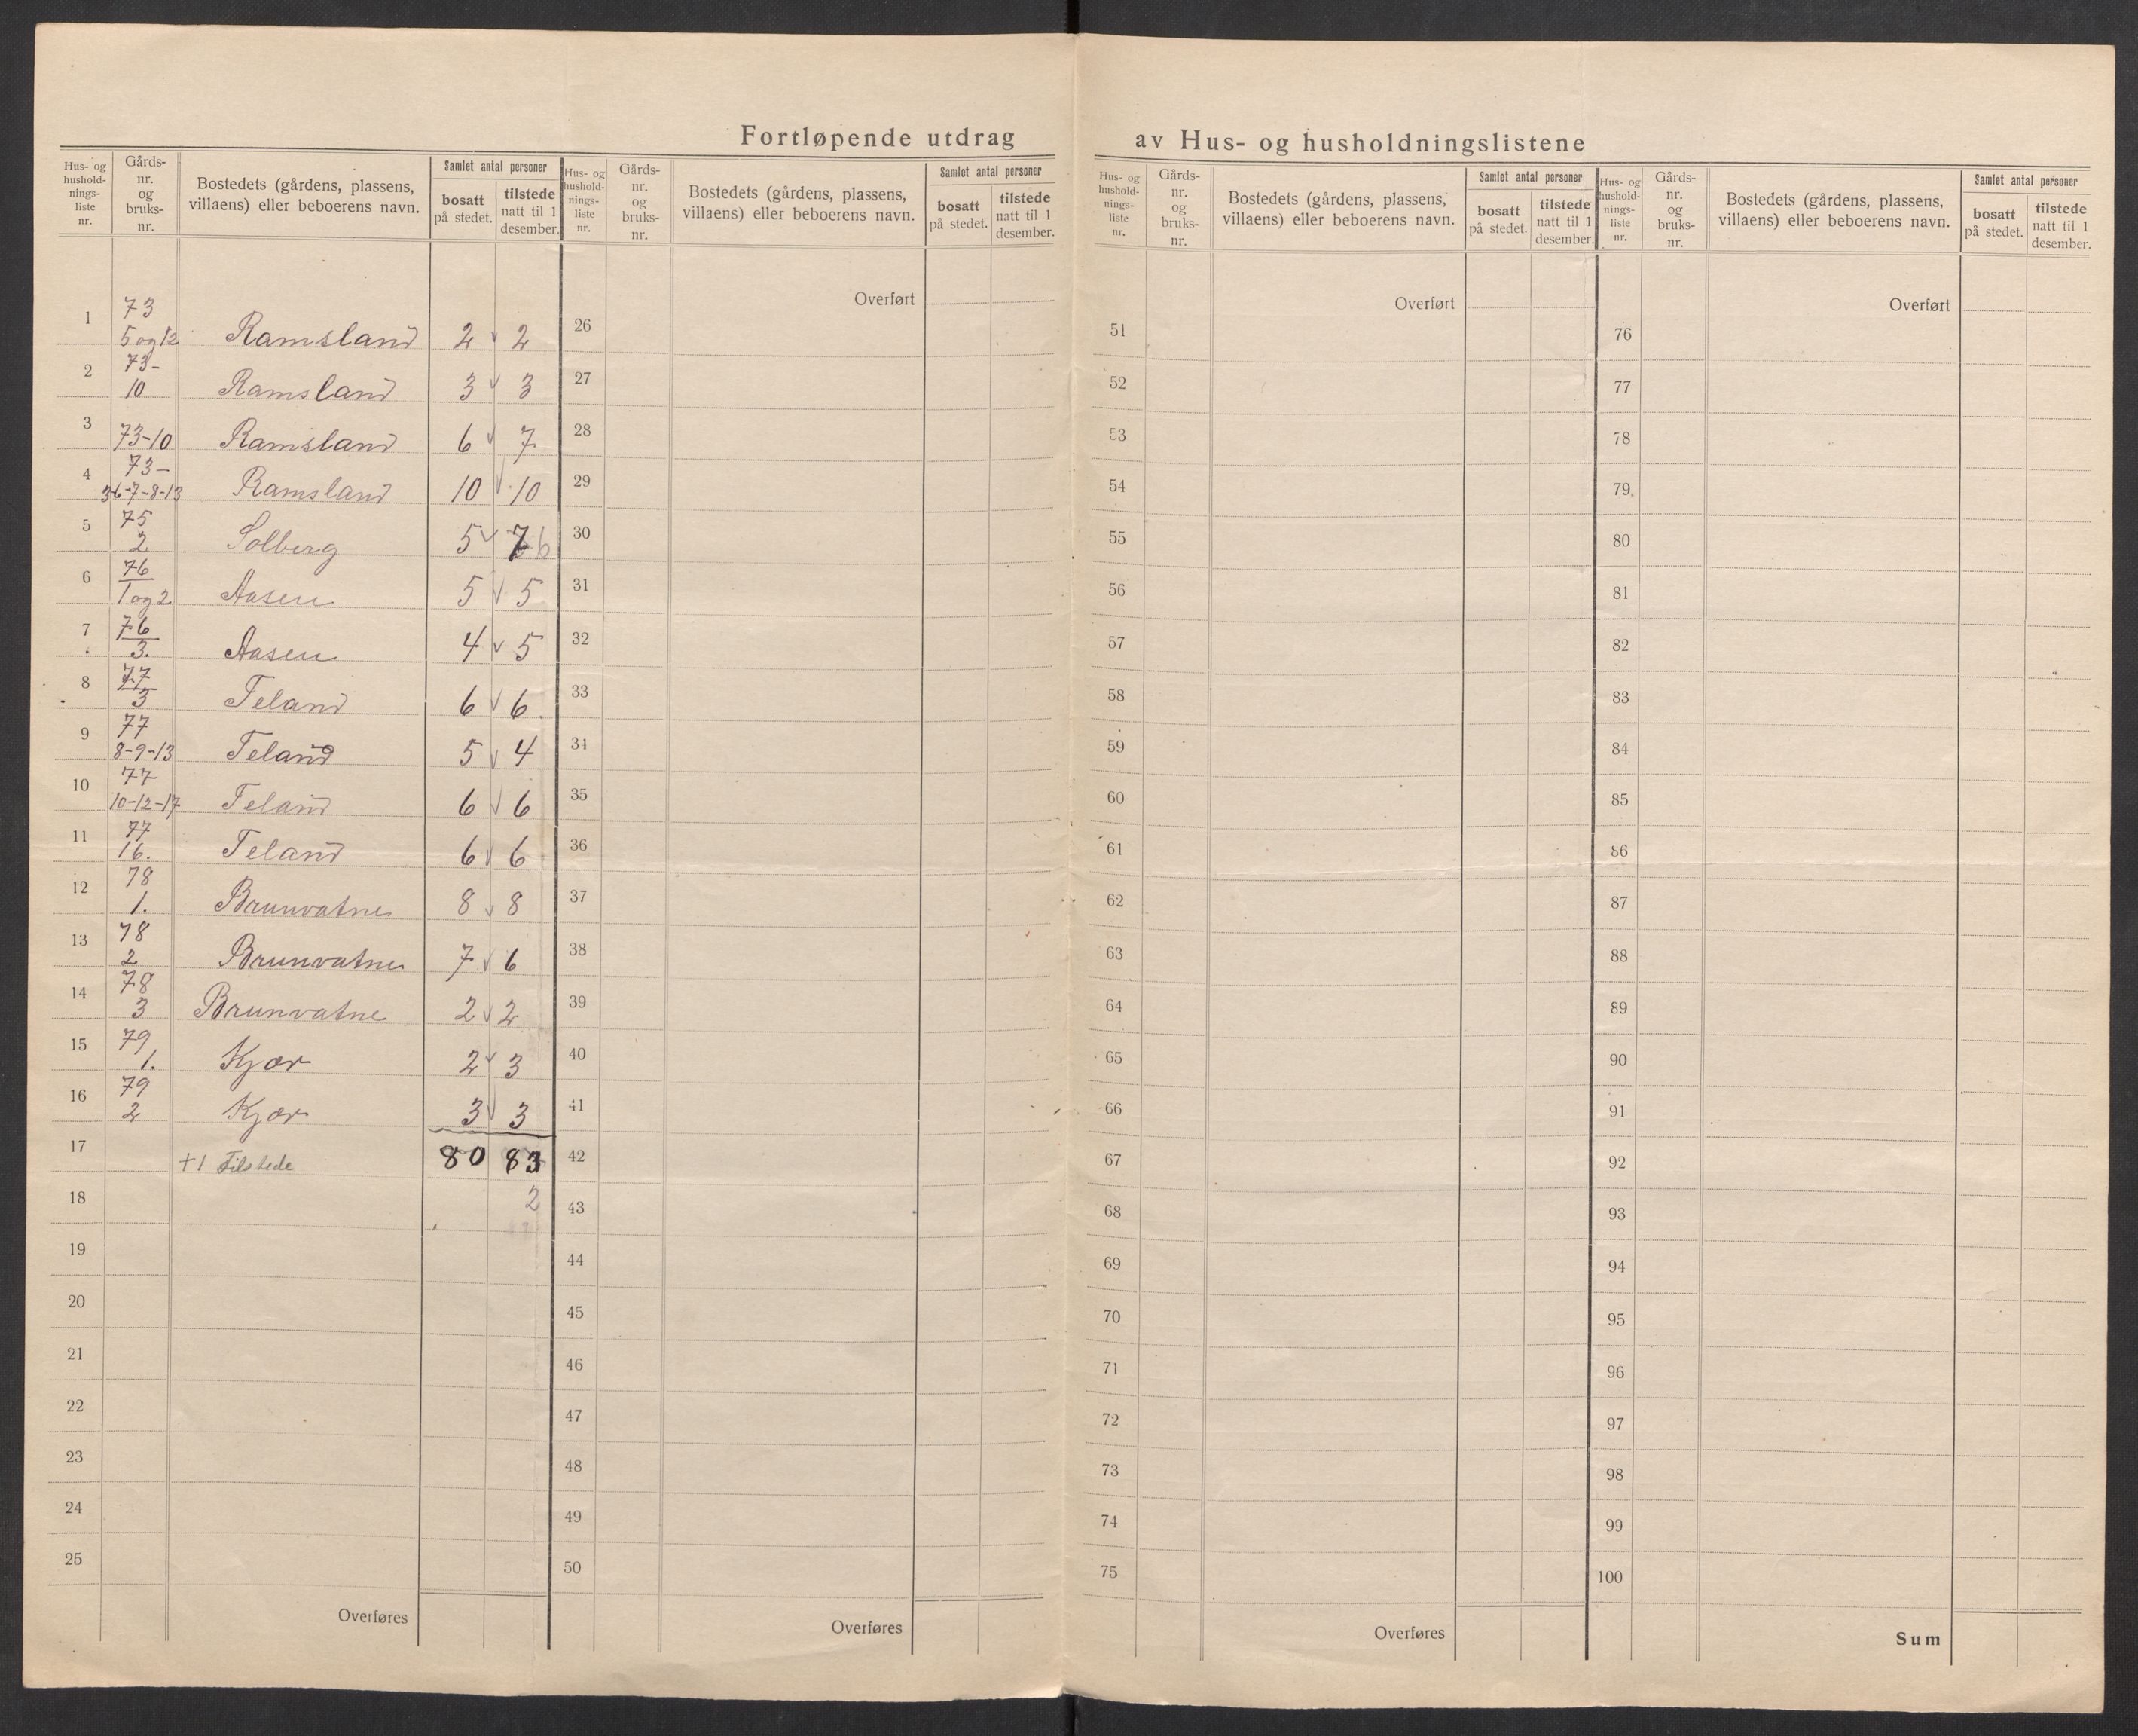 Fortløpende utdrag av Hus- og husholdningslistene
Hus- og husholdnings-liste nr. Gårds-nr. og bruks-nr. Bostedets (gårdens, plassens, villaens) eller beboerens navn. Samlet antal personer bosatt på stedet. tilstede natt til 1 desember.
1 73 5 og 12 Ramsland 2 2
2 73- 10 Ramsland 3 3
3 73-10 Ramsland 6 7
4 73- 36-7-8-13 Ramsland 10 10
5 75 2 Solberg 5 7 6
6 76 1 og 2 Aasen 5 5
7 76 3. Aasen 4 5
8 77 3 Teland 6 6
9 77 8-9-13 Teland 5 4
10 77 10-12-17 Teland 6 6
11 77 16. Teland 6 6
12 78 1. Brunvatne 8 8
13 78 2 Brunvatne 7 6
14 78 3 Brunvatne 2 2
15 79 1. Kjær 2 3
16 79 2 Kjær 3 3
17 +1 Tilstede 80 83
18 2
19
20
21
22
23
24
25
Overføres
Hus- og husholdnings-liste nr. Gårds-nr. og bruks-nr. Bostedets (gårdens, plassens, villaens) eller beboerens navn. Samlet antal personer bosatt på stedet. tilstede natt til 1 desember.
Overført
26
27
28
29
30
31
32
33
34
35
36
37
38
39
40
41
42
43
44
45
46
47
48
49
50
Overføres
Hus- og husholdnings-liste nr. Gårds-nr. og bruks-nr. Bostedets (gårdens, plassens, villaens) eller beboerens navn. Samlet antal personer bosatt på stedet. tilstede natt til 1 desember.
Overført
51
52
53
54
55
56
57
58
59
60
61
62
63
64
65
66
67
68
69
70
71
72
73
74
75
Overføres
Hus- og husholdnings-liste nr. Gårds-nr. og bruks-nr. Bostedets (gårdens, plassens, villaens) eller beboerens navn. Samlet antal personer bosatt på stedet. tilstede natt til 1 desember.
Overført
76
77
78
79
80
81
82
83
84
85
86
87
88
89
90
91
92
93
94
95
96
97
98
99
100
Sum